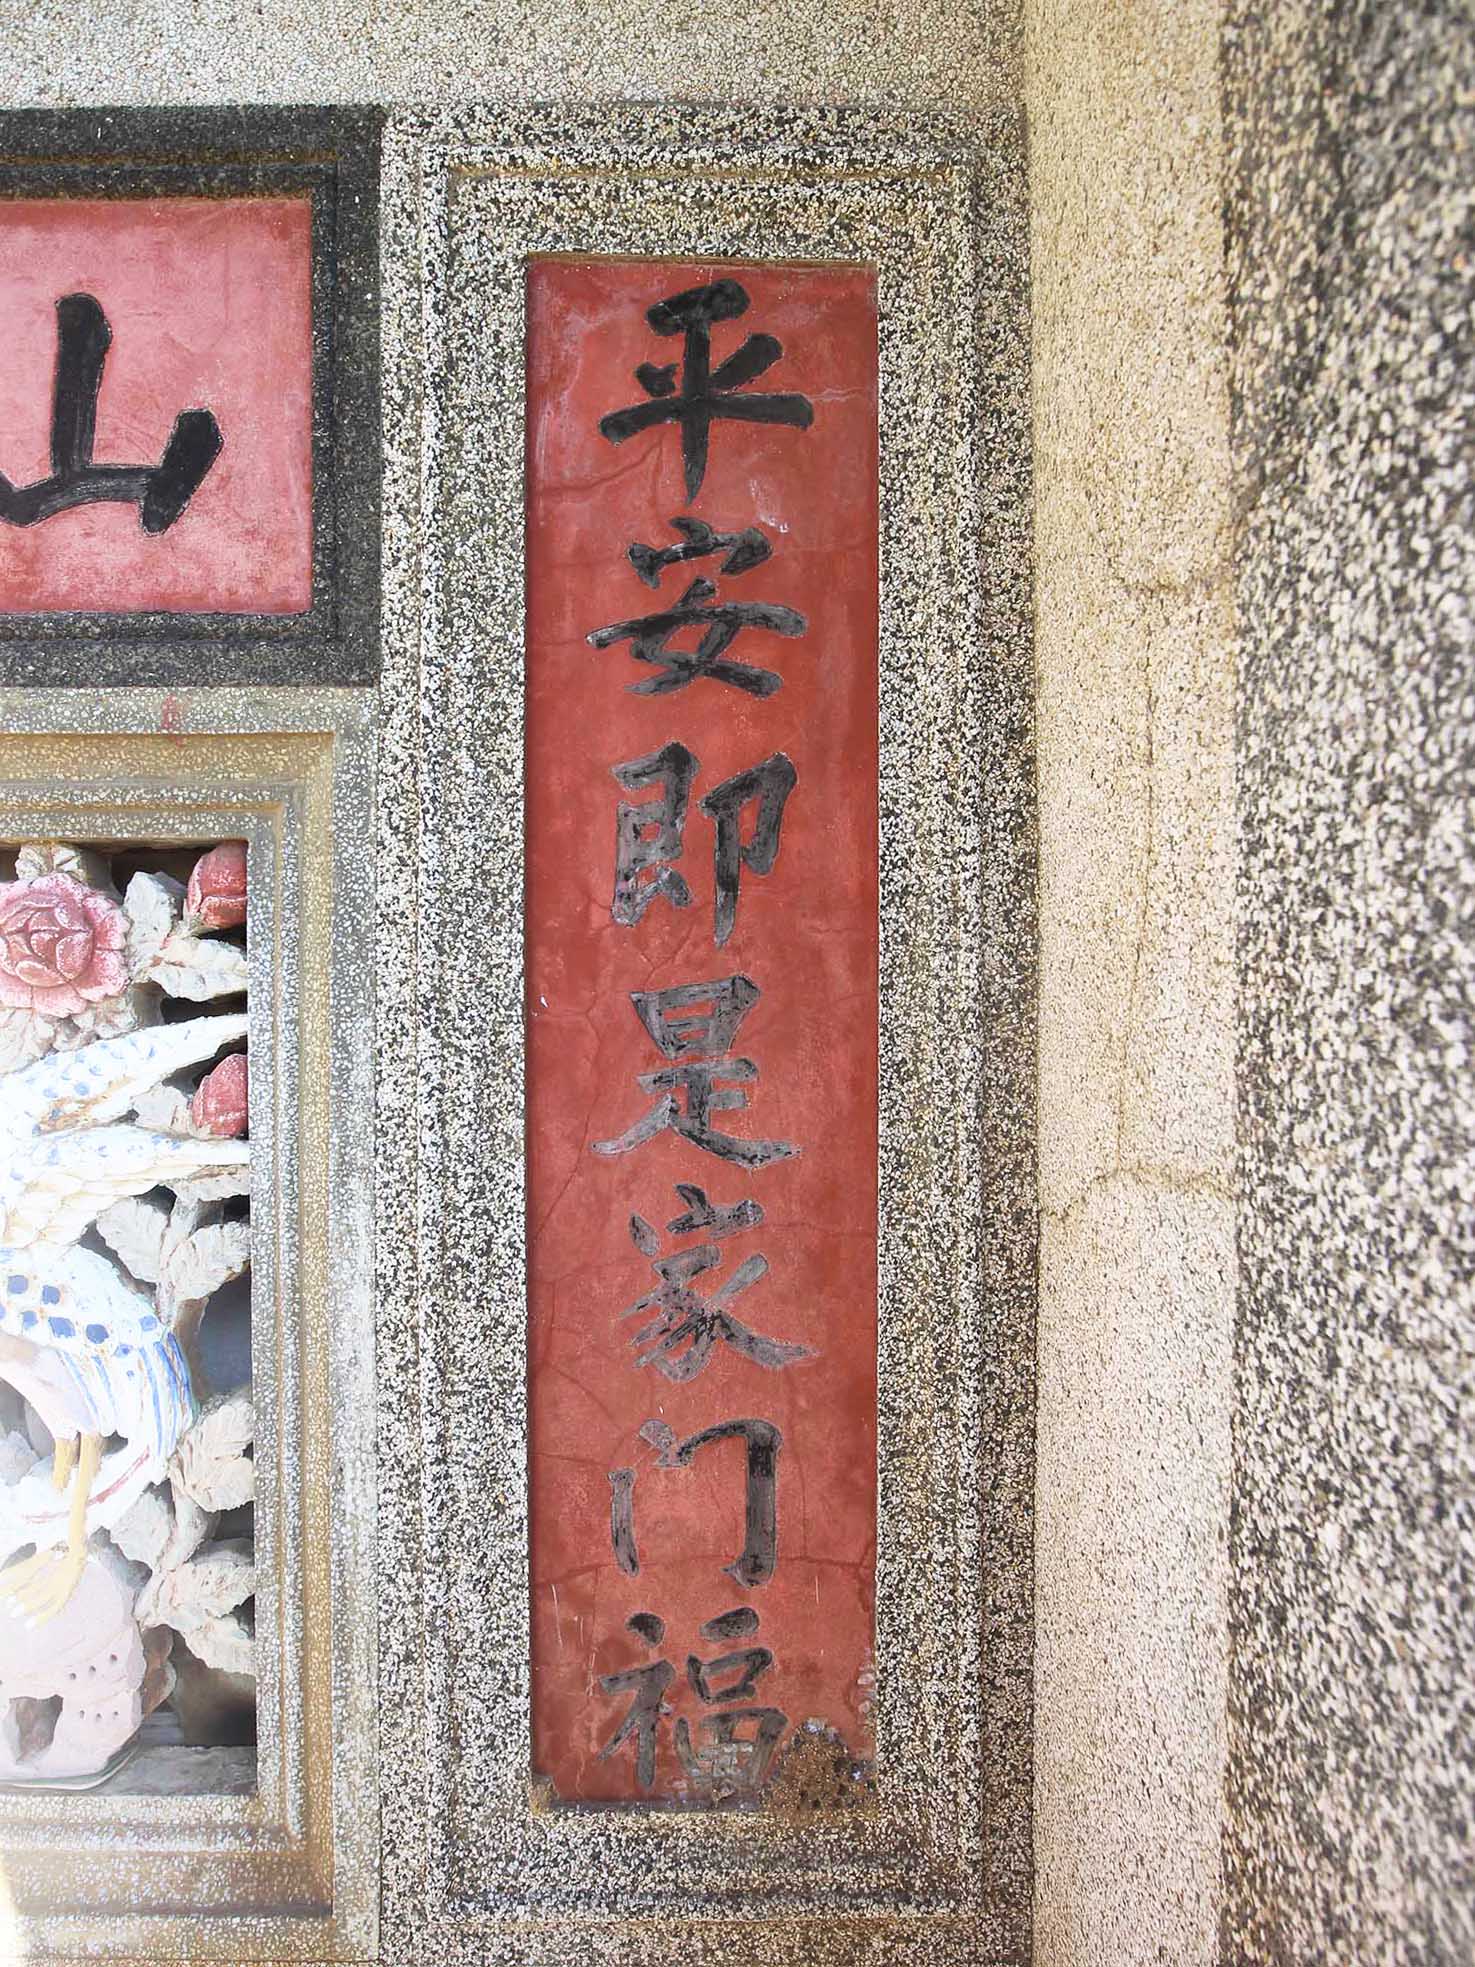 平安即是家门福
山